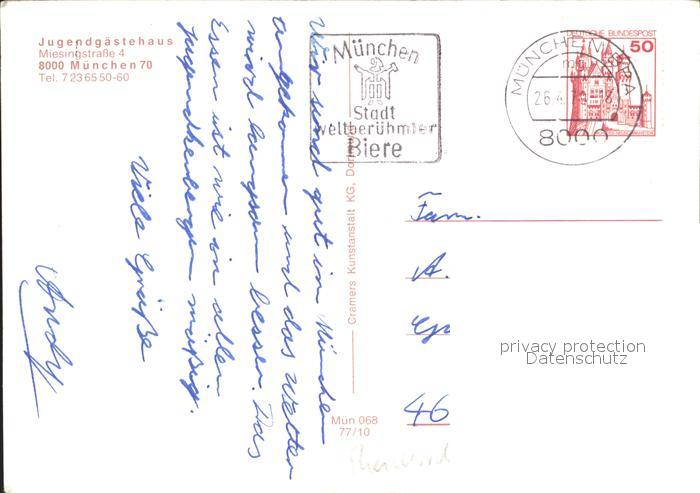 Jugendgästehaus
Miesingstraße 4
8000 München 70
Tel. 7 23 65 50-60
Wir sind gut in München
angekommen und das Wetter
wird langsam besser. Das
Essen ist wie in allen
Jugendherbergen mäßig.
Viele Grüße
Andy
München
Stadt
weltberühmter
Biere
DEUTSCHE BUNDESPOST
50
MÜNCHEN
26.4.
8000
Cramers Kunstanstalt KG, Dortmund
Mün 068
77/10
Fam.
A.
46
privacy protection
Datenschutz